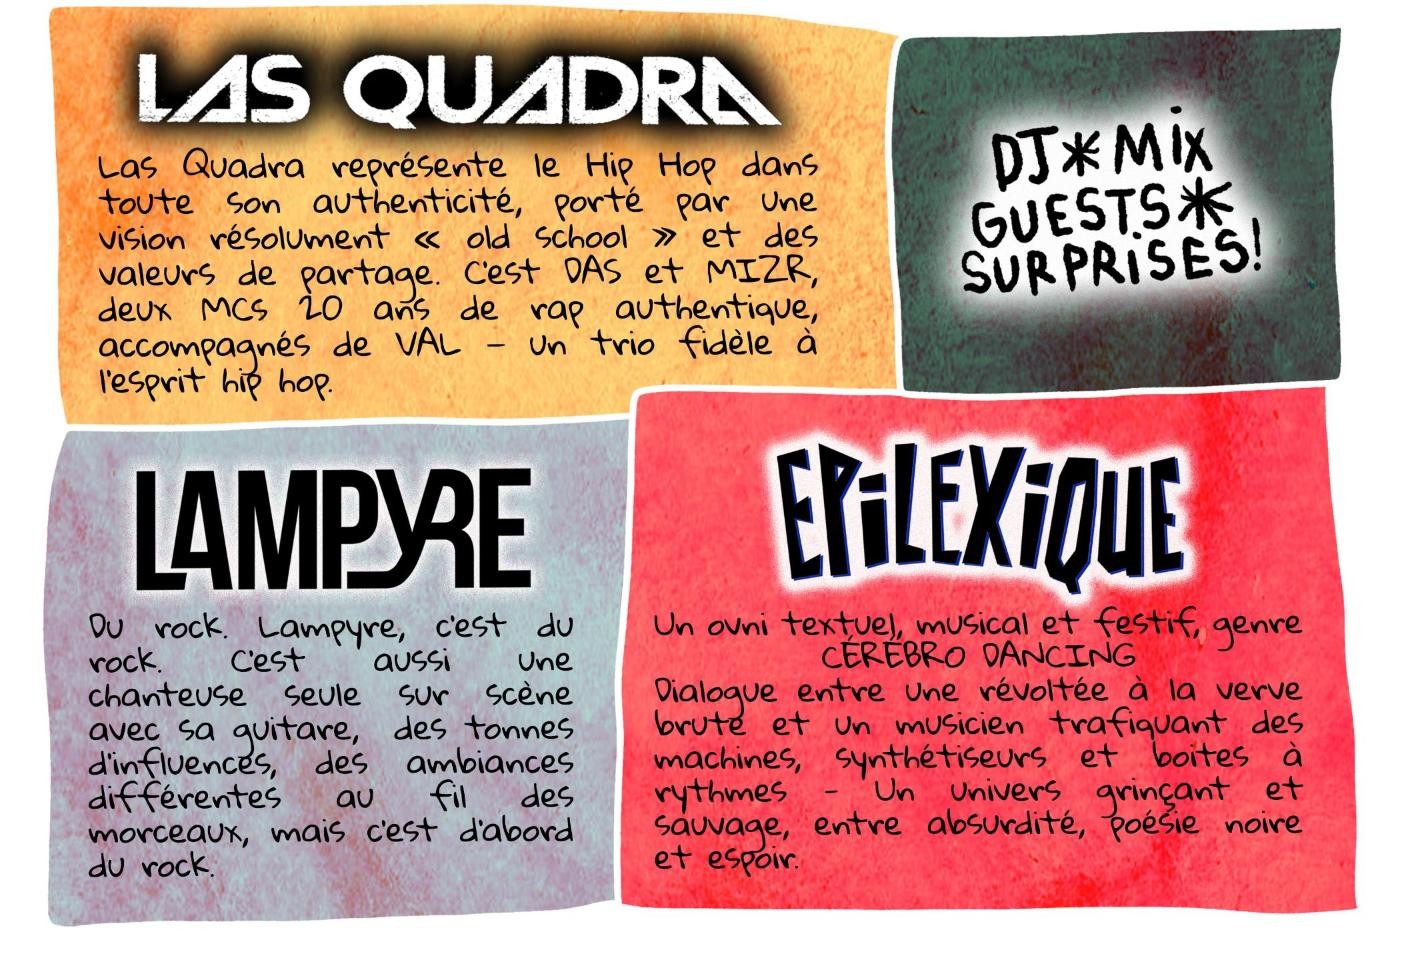 LAS QUADRA
Las Quadra représente le Hip Hop dans
toute son authenticité, porté par une
vision résolument « old school » et des
valeurs de partage. C'est DAS et MIZR,
deux MCs 20 ans de rap authentique,
accompagnés de VAL – un trio fidèle à
l'esprit hip hop.
DJ*MiX
GUESTS*
SURPRiSES!
LAMPYRE
Du rock. Lampyre, c'est du
rock. C'est aussi une
chanteuse seule sur scène
avec sa guitare, des tonnes
d'influences, des ambiances
différentes au fil des
morceaux, mais c'est d'abord
du rock.
EPiLEXiQUE
Un ovni textuel, musical et festif, genre
CEREBRO DANCING
Dialogue entre une révoltée à la verve
brute et un musicien trafiquant des
machines, synthétiseurs et boites à
rythmes - Un univers grinçant et
sauvage, entre absurdité, poésie noire
et espoir.